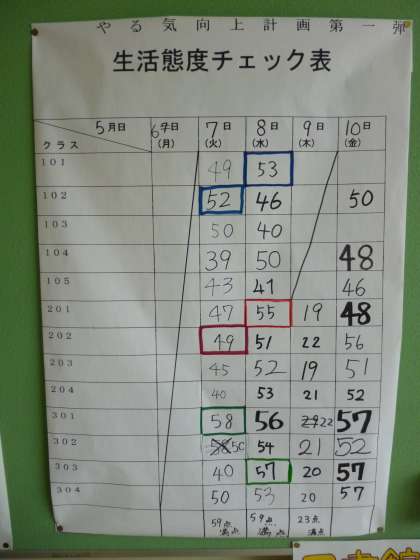 やる気向上計画第一弾
生活態度チェック表
5月日 6日(月) 7日(火) 8日(水) 9日(木) 10日(金)
クラス
101 49 53
102 52 46 50
103 50 40
104 39 50 48
105 43 41 46
201 47 55 19 48
202 49 51 22 56
203 45 52 19 51
204 40 53 21 52
301 58 56 22 57
302 50 54 21 52
303 40 57 20 57
304 50 53 20 57
59点満点 59点満点 23点満点